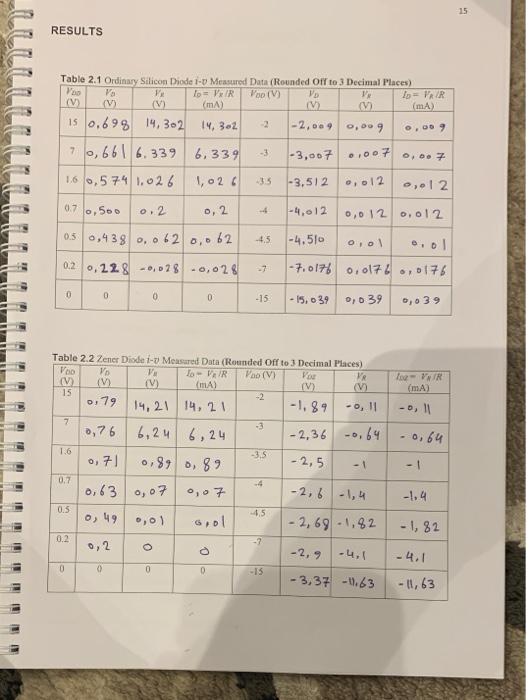 15
RESULTS
Table 2.1 Ordinary Silicon Diode i-υ Measured Data (Rounded Off to 3 Decimal Places)
VDD (V) VD (V) VR (V) ID = VR/R (mA) VDD (V) VD (V) VR (V) ID = VR/R (mA)
15 0,698 14,302 14,302 -2 -2,009 0,009 0,009
7 0,661 6,339 6,339 -3 -3,007 0,007 0,007
1.6 0,574 1,026 1,026 -3.5 -3,512 0,012 0,012
0.7 0,500 0,2 0,2 -4 -4,012 0,012 0,012
0.5 0,438 0,062 0,062 -4.5 -4,510 0,01 0,01
0.2 0,228 -0,028 -0,028 -7 -7,0176 0,0176 0,0176
0 0 0 0 -15 -15,039 0,039 0,039
Table 2.2 Zener Diode i-υ Measured Data (Rounded Off to 3 Decimal Places)
VDD (V) VD (V) VR (V) ID = VR/R (mA) VDD (V) VDZ (V) VR (V) IDZ = VR/R (mA)
15 0,79 14,21 14,21 -2 -1,89 -0,11 -0,11
7 0,76 6,24 6,24 -3 -2,36 -0,64 -0,64
1.6 0,71 0,89 0,89 -3.5 -2,5 -1 -1
0.7 0,63 0,07 0,07 -4 -2,6 -1,4 -1,4
0.5 0,49 0,01 0,01 -4.5 -2,68 -1,82 -1,82
0.2 0,2 0 0 -7 -2,9 -4,1 -4,1
0 0 0 0 -15 -3,37 -11,63 -11,63